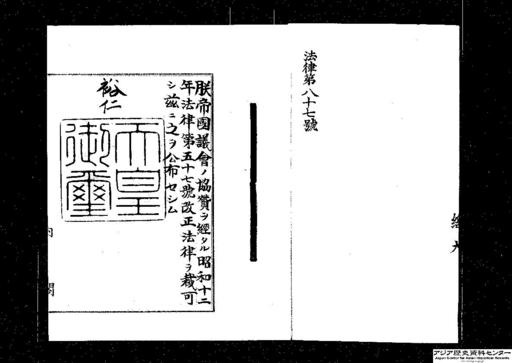 朕帝國議會ノ協贊ヲ經タル昭和十二
年法律第五十七號改正法律ヲ裁可
シ茲ニ之ヲ公布セシム
裕仁
天皇
御璽
内
閣
法律第八十七號
アジア歴史資料センター
Japan Center for Asian Historical Records